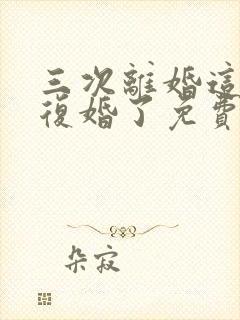 三次離婚這
復婚了免費
朵寂